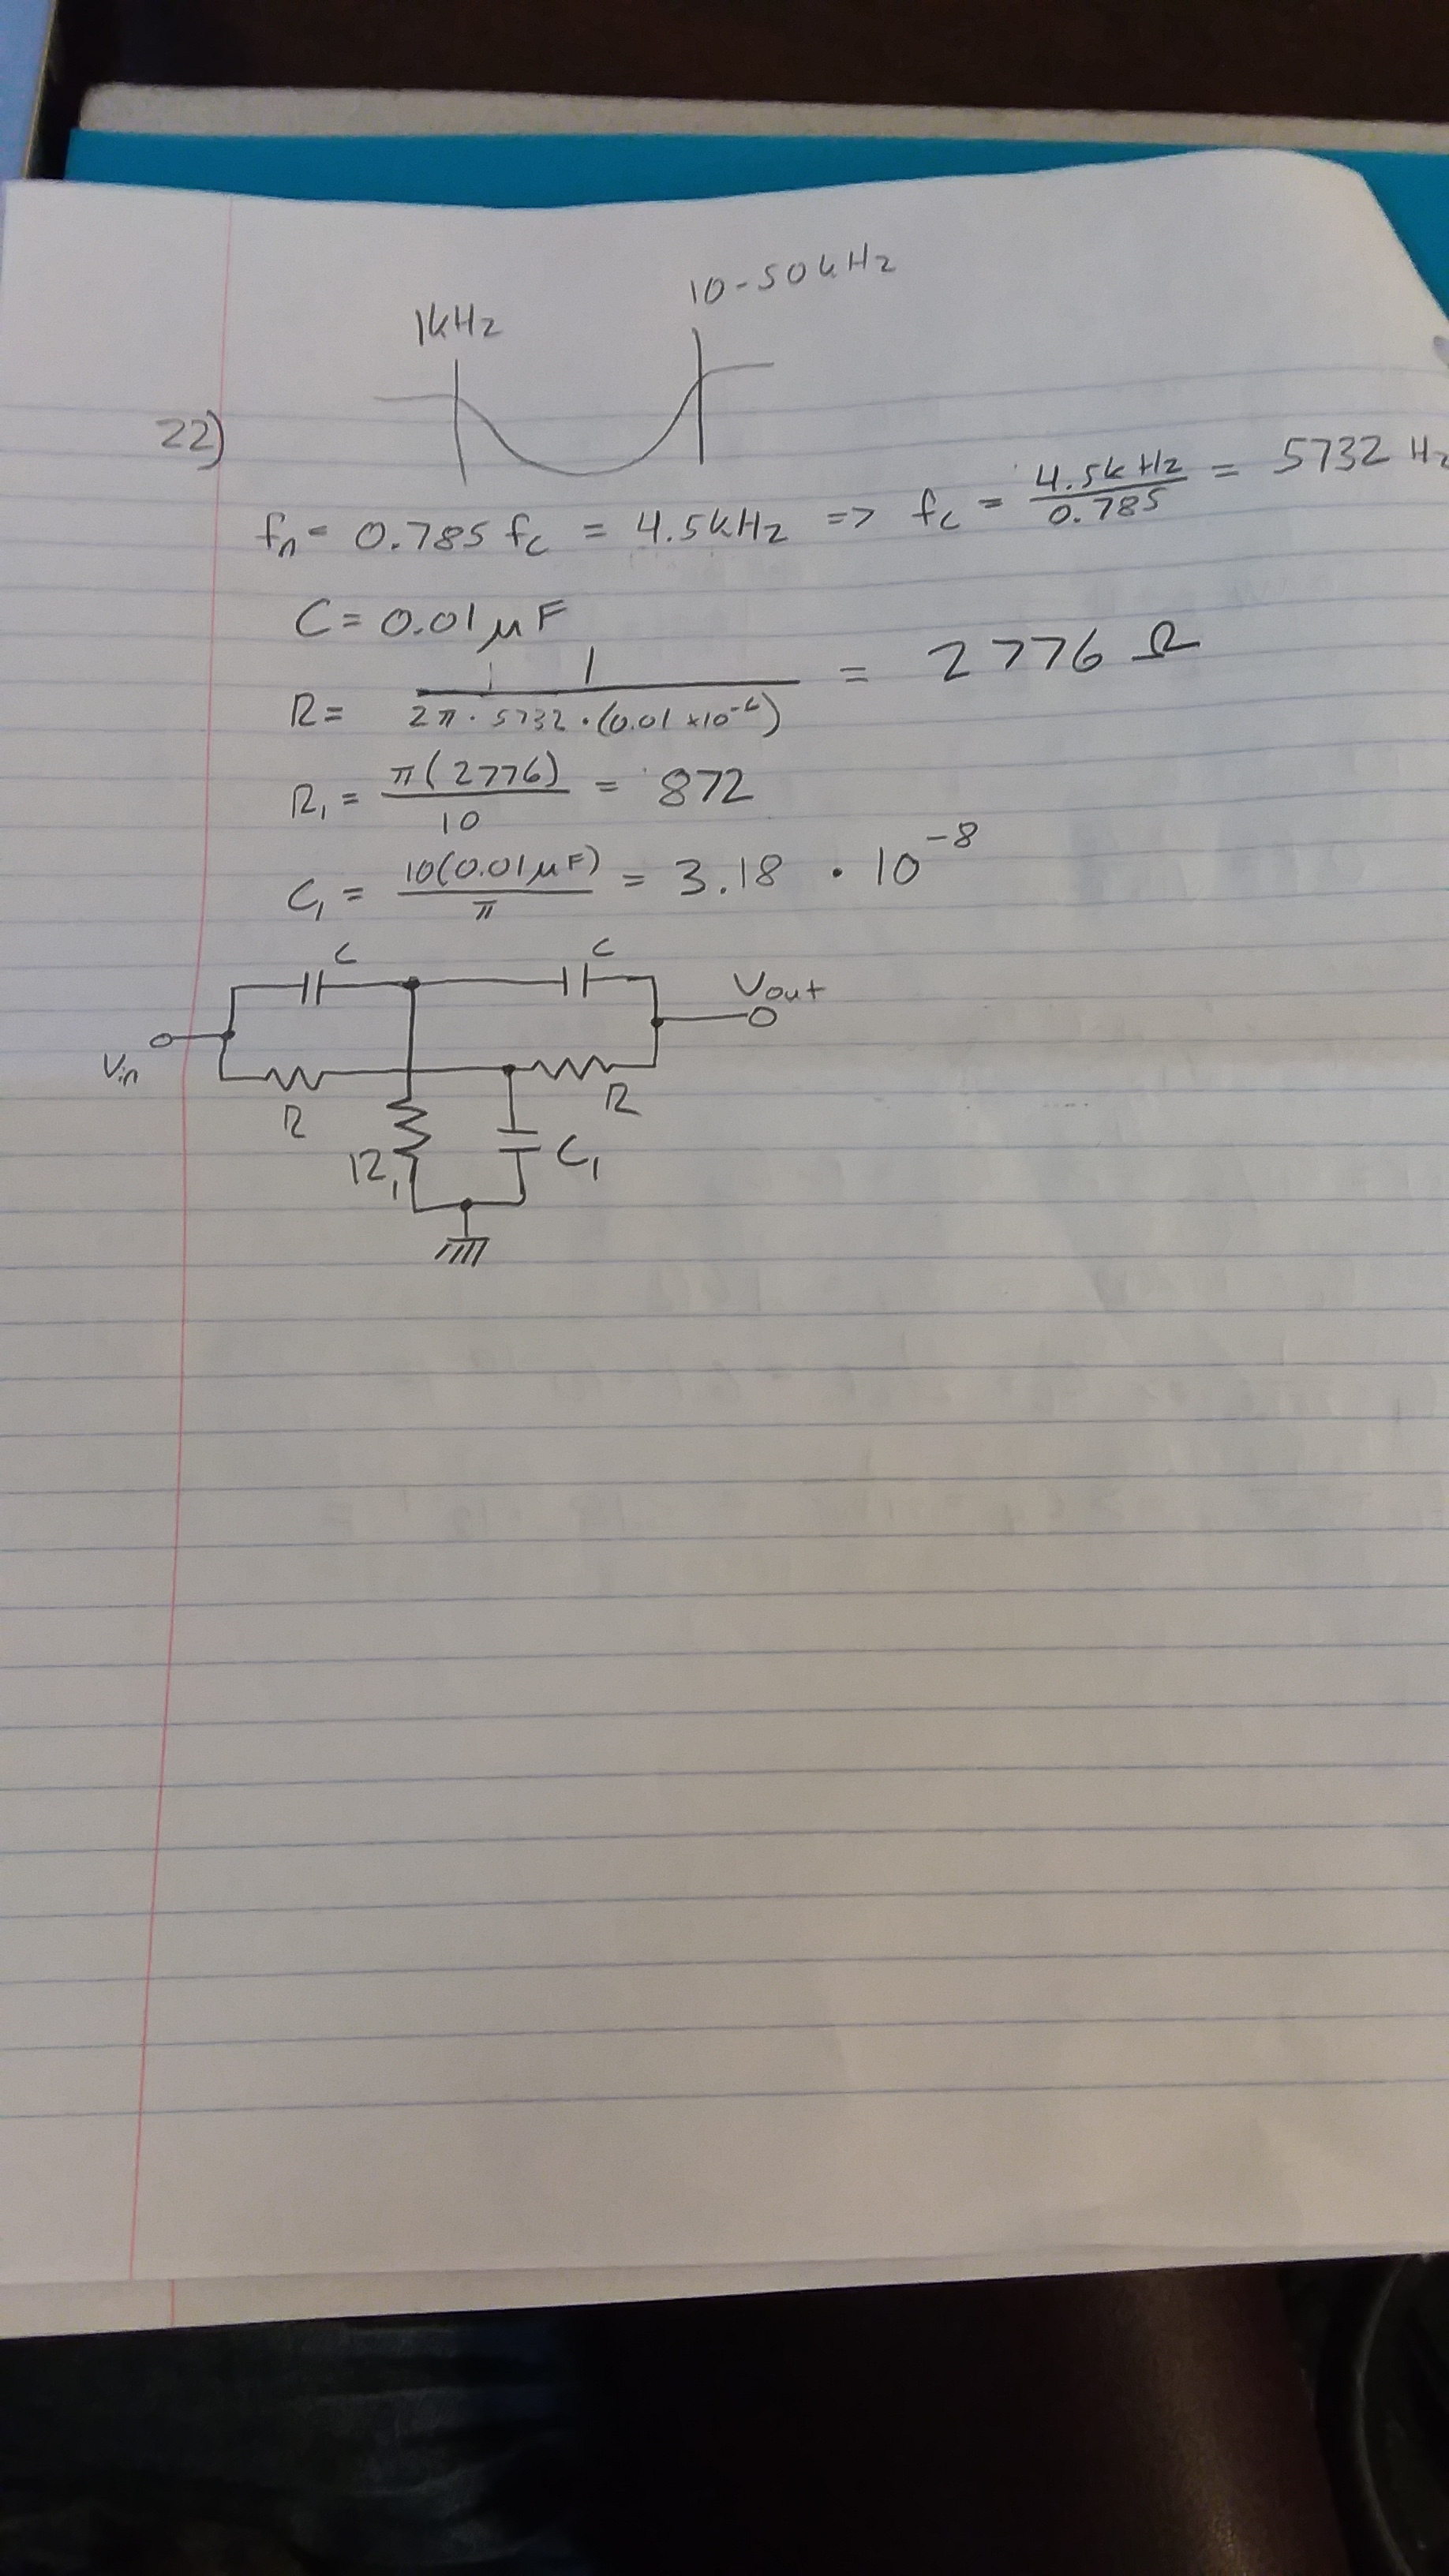 1kHz 10-50kHz
22)
fn = 0.785 fc = 4.5kHz => fc = 4.5kHz / 0.785 = 5732 Hz
C = 0.01 μF
R = 1 / 2π · 5732 · (0.01 × 10⁻⁶) = 2776 Ω
R₁ = π(2776) / 10 = 872
C₁ = 10(0.01μF) / π = 3.18 · 10⁻⁸
C C
Vin Vout
R R
R₁ C₁